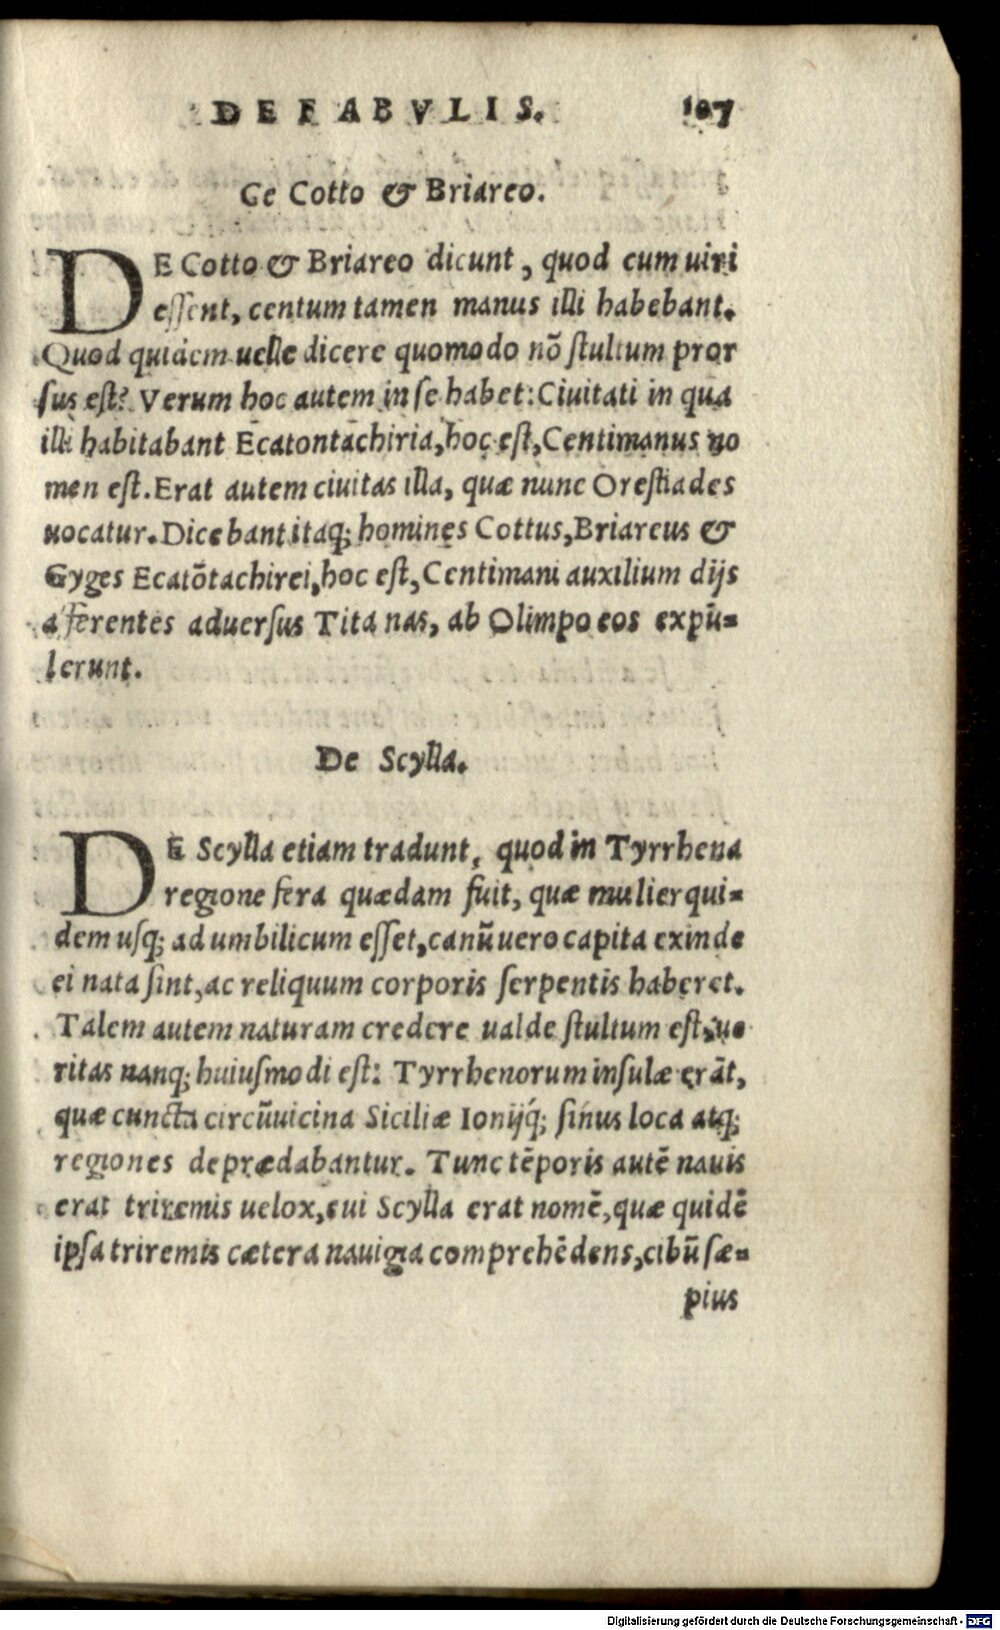 DE FABVLIS. 107
Ce Cotto & Briareo.
DE Cotto & Briareo dicunt, quod cum uiri
essent, centum tamen manus illi habebant.
Quod quidem uelle dicere quomodo nō stultum pror
sus est? Verum hoc autem in se habet: Ciuitati in qua
illi habitabant Ecatontachiria, hoc est, Centimanus no
men est. Erat autem ciuitas illa, quæ nunc Orestiades
uocatur. Dicebant itaq; homines Cottus, Briareus &
Gyges Ecatōtachirei, hoc est, Centimani auxilium dijs
afferentes aduersus Titanas, ab Olimpo eos expu-
lerunt.
De Scylla.
DE Scylla etiam tradunt, quod in Tyrrhena
regione fera quædam fuit, quæ mulier qui-
dem usq; ad umbilicum esset, canū uero capita exinde
ei nata sint, ac reliquum corporis serpentis haberet.
Talem autem naturam credere ualde stultum est, ue
ritas nanq; huiusmodi est: Tyrrhenorum insulæ erāt,
quæ cuncta circūuicina Siciliæ Ionijq́; sinus loca atq;
regiones deprædabantur. Tunc tēporis autē nauis
erat triremis uelox, cui Scylla erat nomē, quæ quidē
ipsa triremis cætera nauigia comprehēdens, cibū sæ-
pius
Digitalisierung gefördert durch die Deutsche Forschungsgemeinschaft - DFG